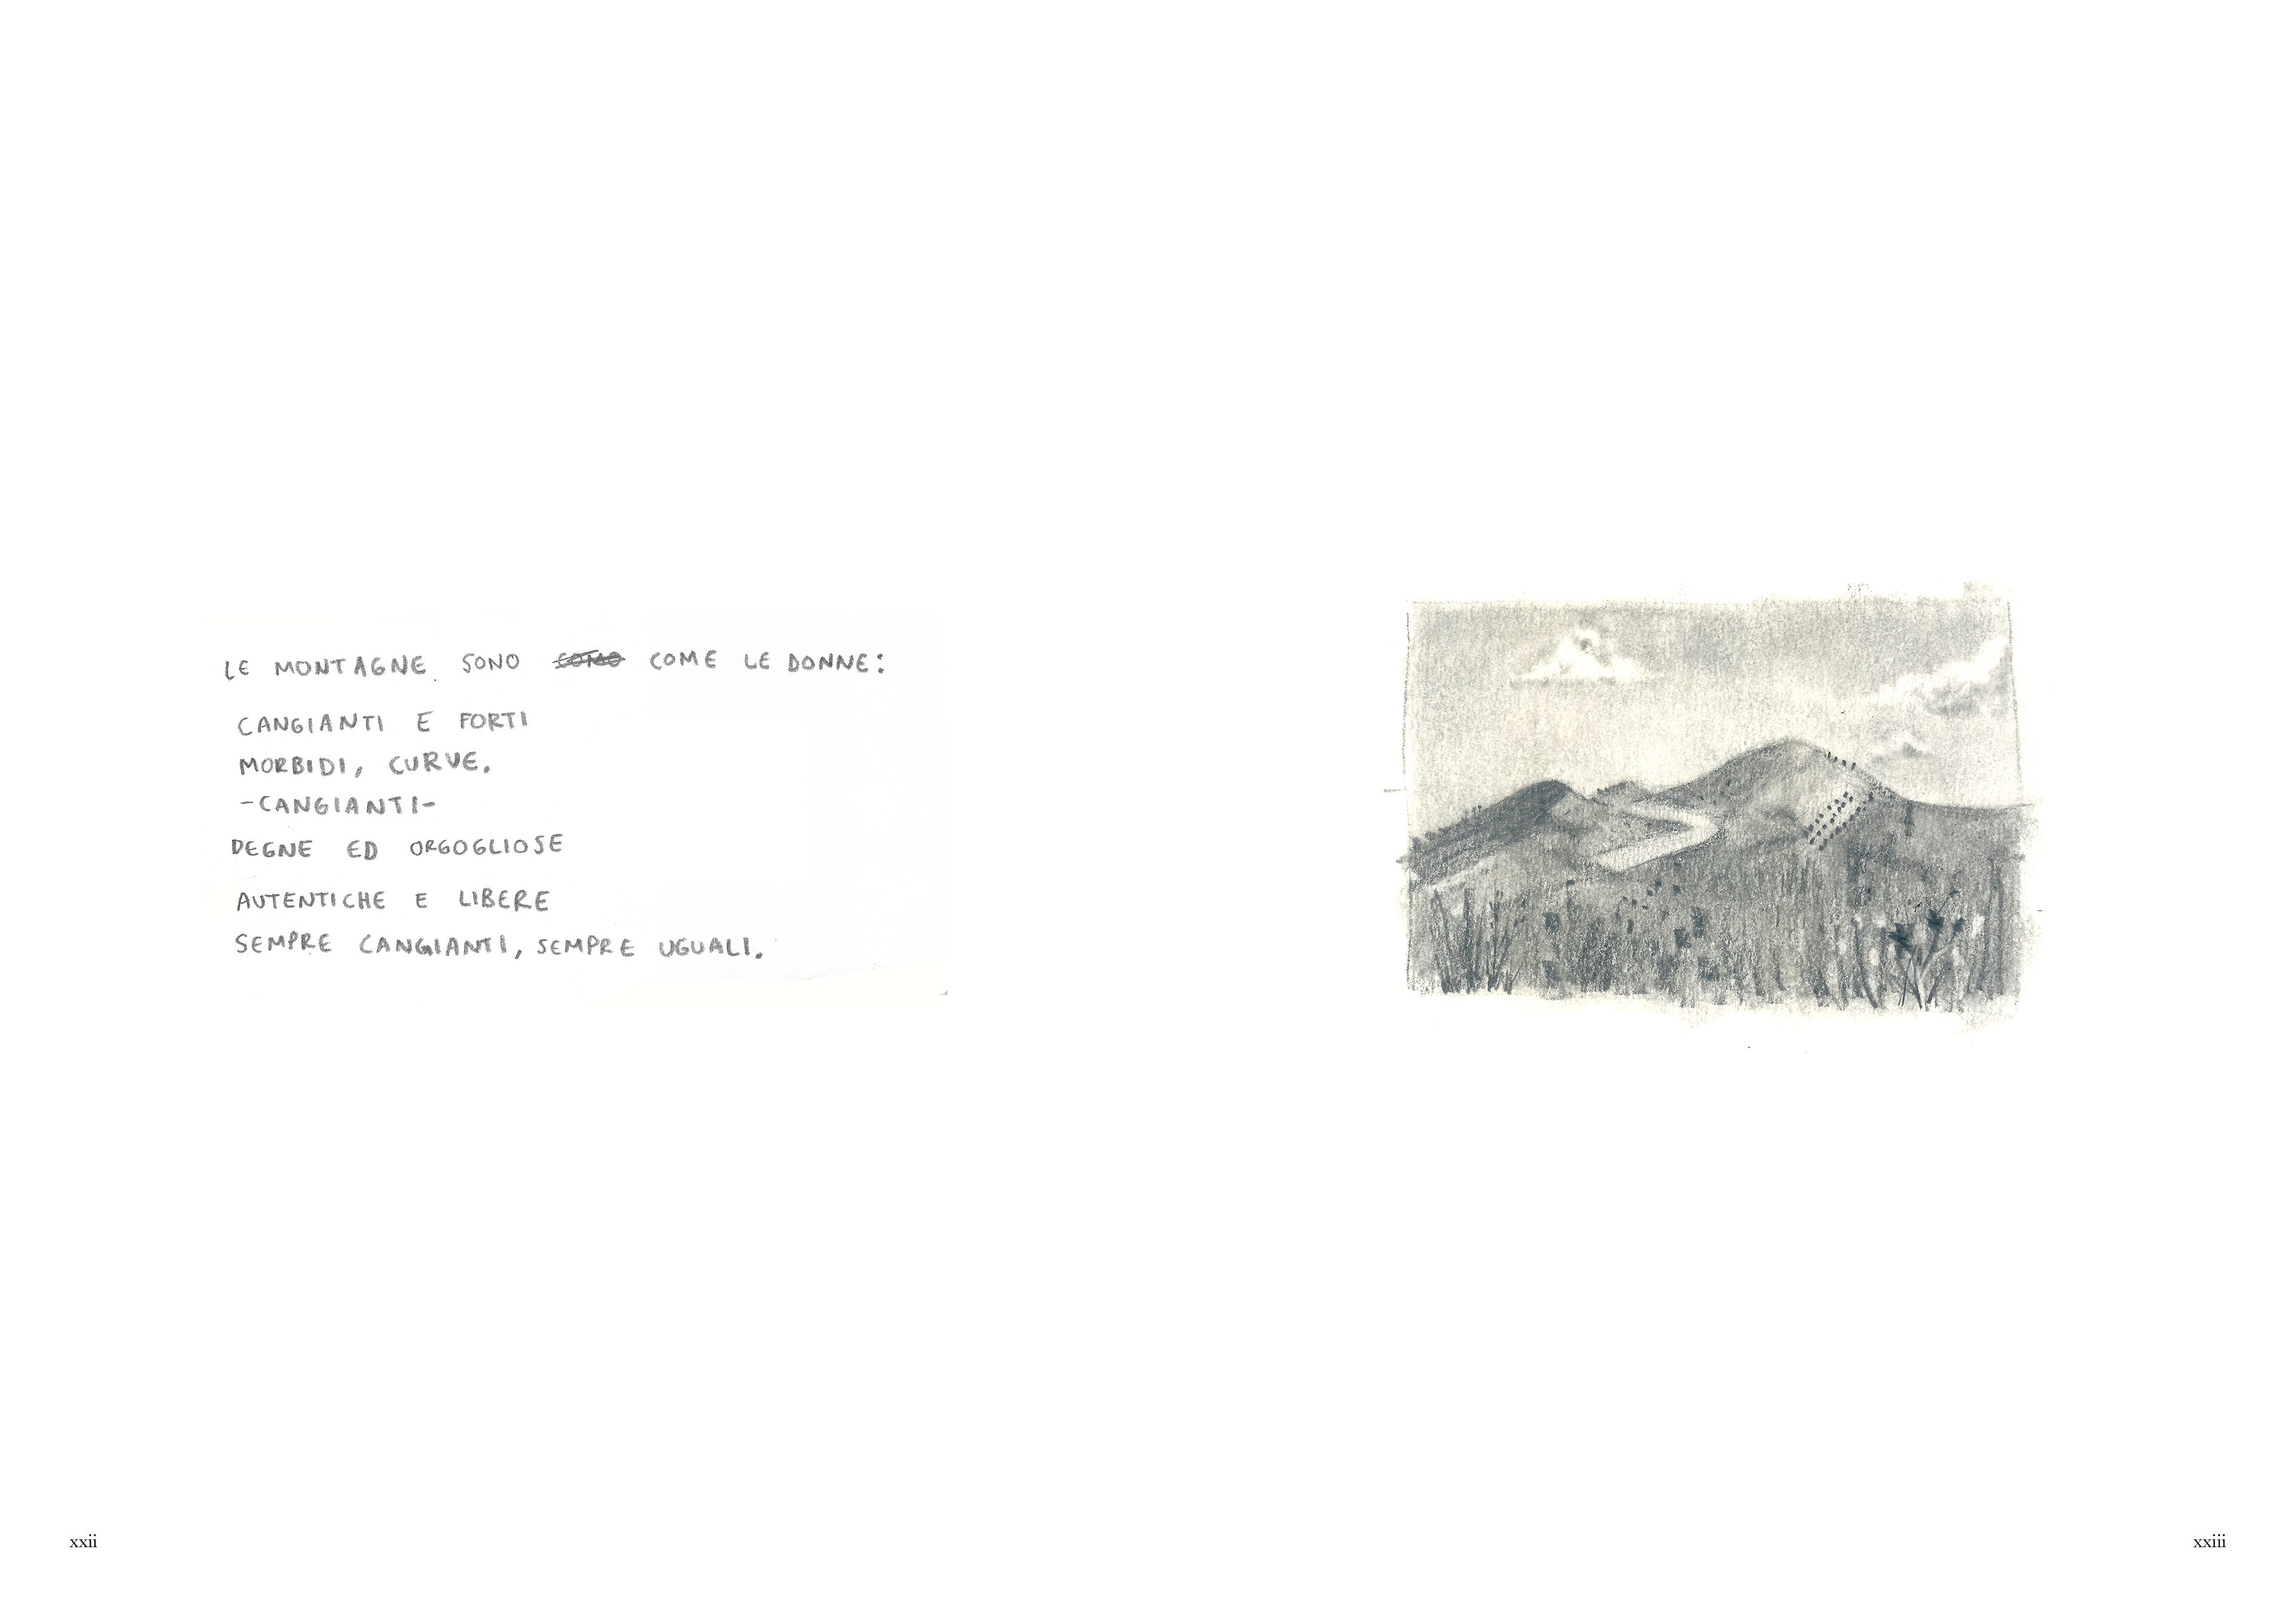 LE MONTAGNE SONO COME LE DONNE:
CANGIANTI E FORTI
MORBIDI, CURVE.
-CANGIANTI-
DEGNE ED ORGOGLIOSE
AUTENTICHE E LIBERE
SEMPRE CANGIANTI, SEMPRE UGUALI.
xxii
xxiii